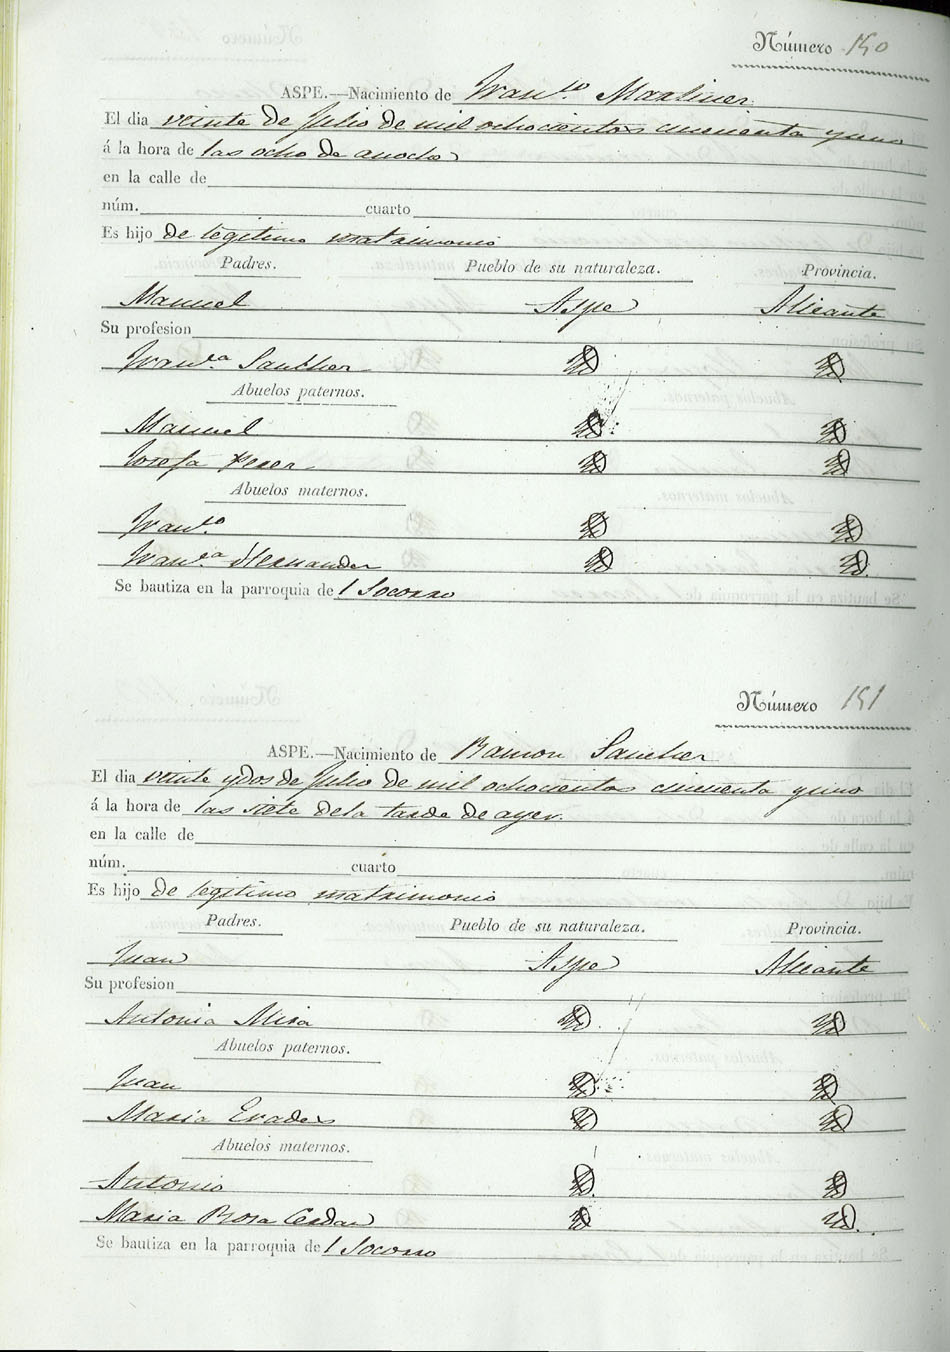 Número 150
ASPE.—Nacimiento de Fran.co Martinez
El dia veinte de Julio de mil ochocientos cincuenta y uno
á la hora de las ocho de anoche
en la calle de
núm. cuarto
Es hijo de legitimo matrimonio
Padres. Pueblo de su naturaleza. Provincia.
Manuel Aspe Alicante
Su profesion
Fran.ca Sanchez Yd Yd
Abuelos paternos.
Manuel Yd Yd
Josefa Perez Yd Yd
Abuelos maternos.
Fran.co Yd Yd
Fran.ca Hernandez Yd Yd.
Se bautiza en la parroquia del Socorro
Número 151
ASPE.—Nacimiento de Ramon Sanchez
El dia veinte y dos de Julio de mil ochocientos cincuenta y uno
á la hora de las siete dela tarde de ayer.
en la calle de
núm. cuarto
Es hijo de legitimo matrimonio
Padres. Pueblo de su naturaleza. Provincia.
Juan Aspe Alicante
Su profesion
Antonia Mira Yd. Yd
Abuelos paternos.
Juan Yd Yd
Maria Erades Yd Yd
Abuelos maternos.
Antonio Yd. Yd
Maria Rosa Cerdan Yd Yd.
Se bautiza en la parroquia del Socorro